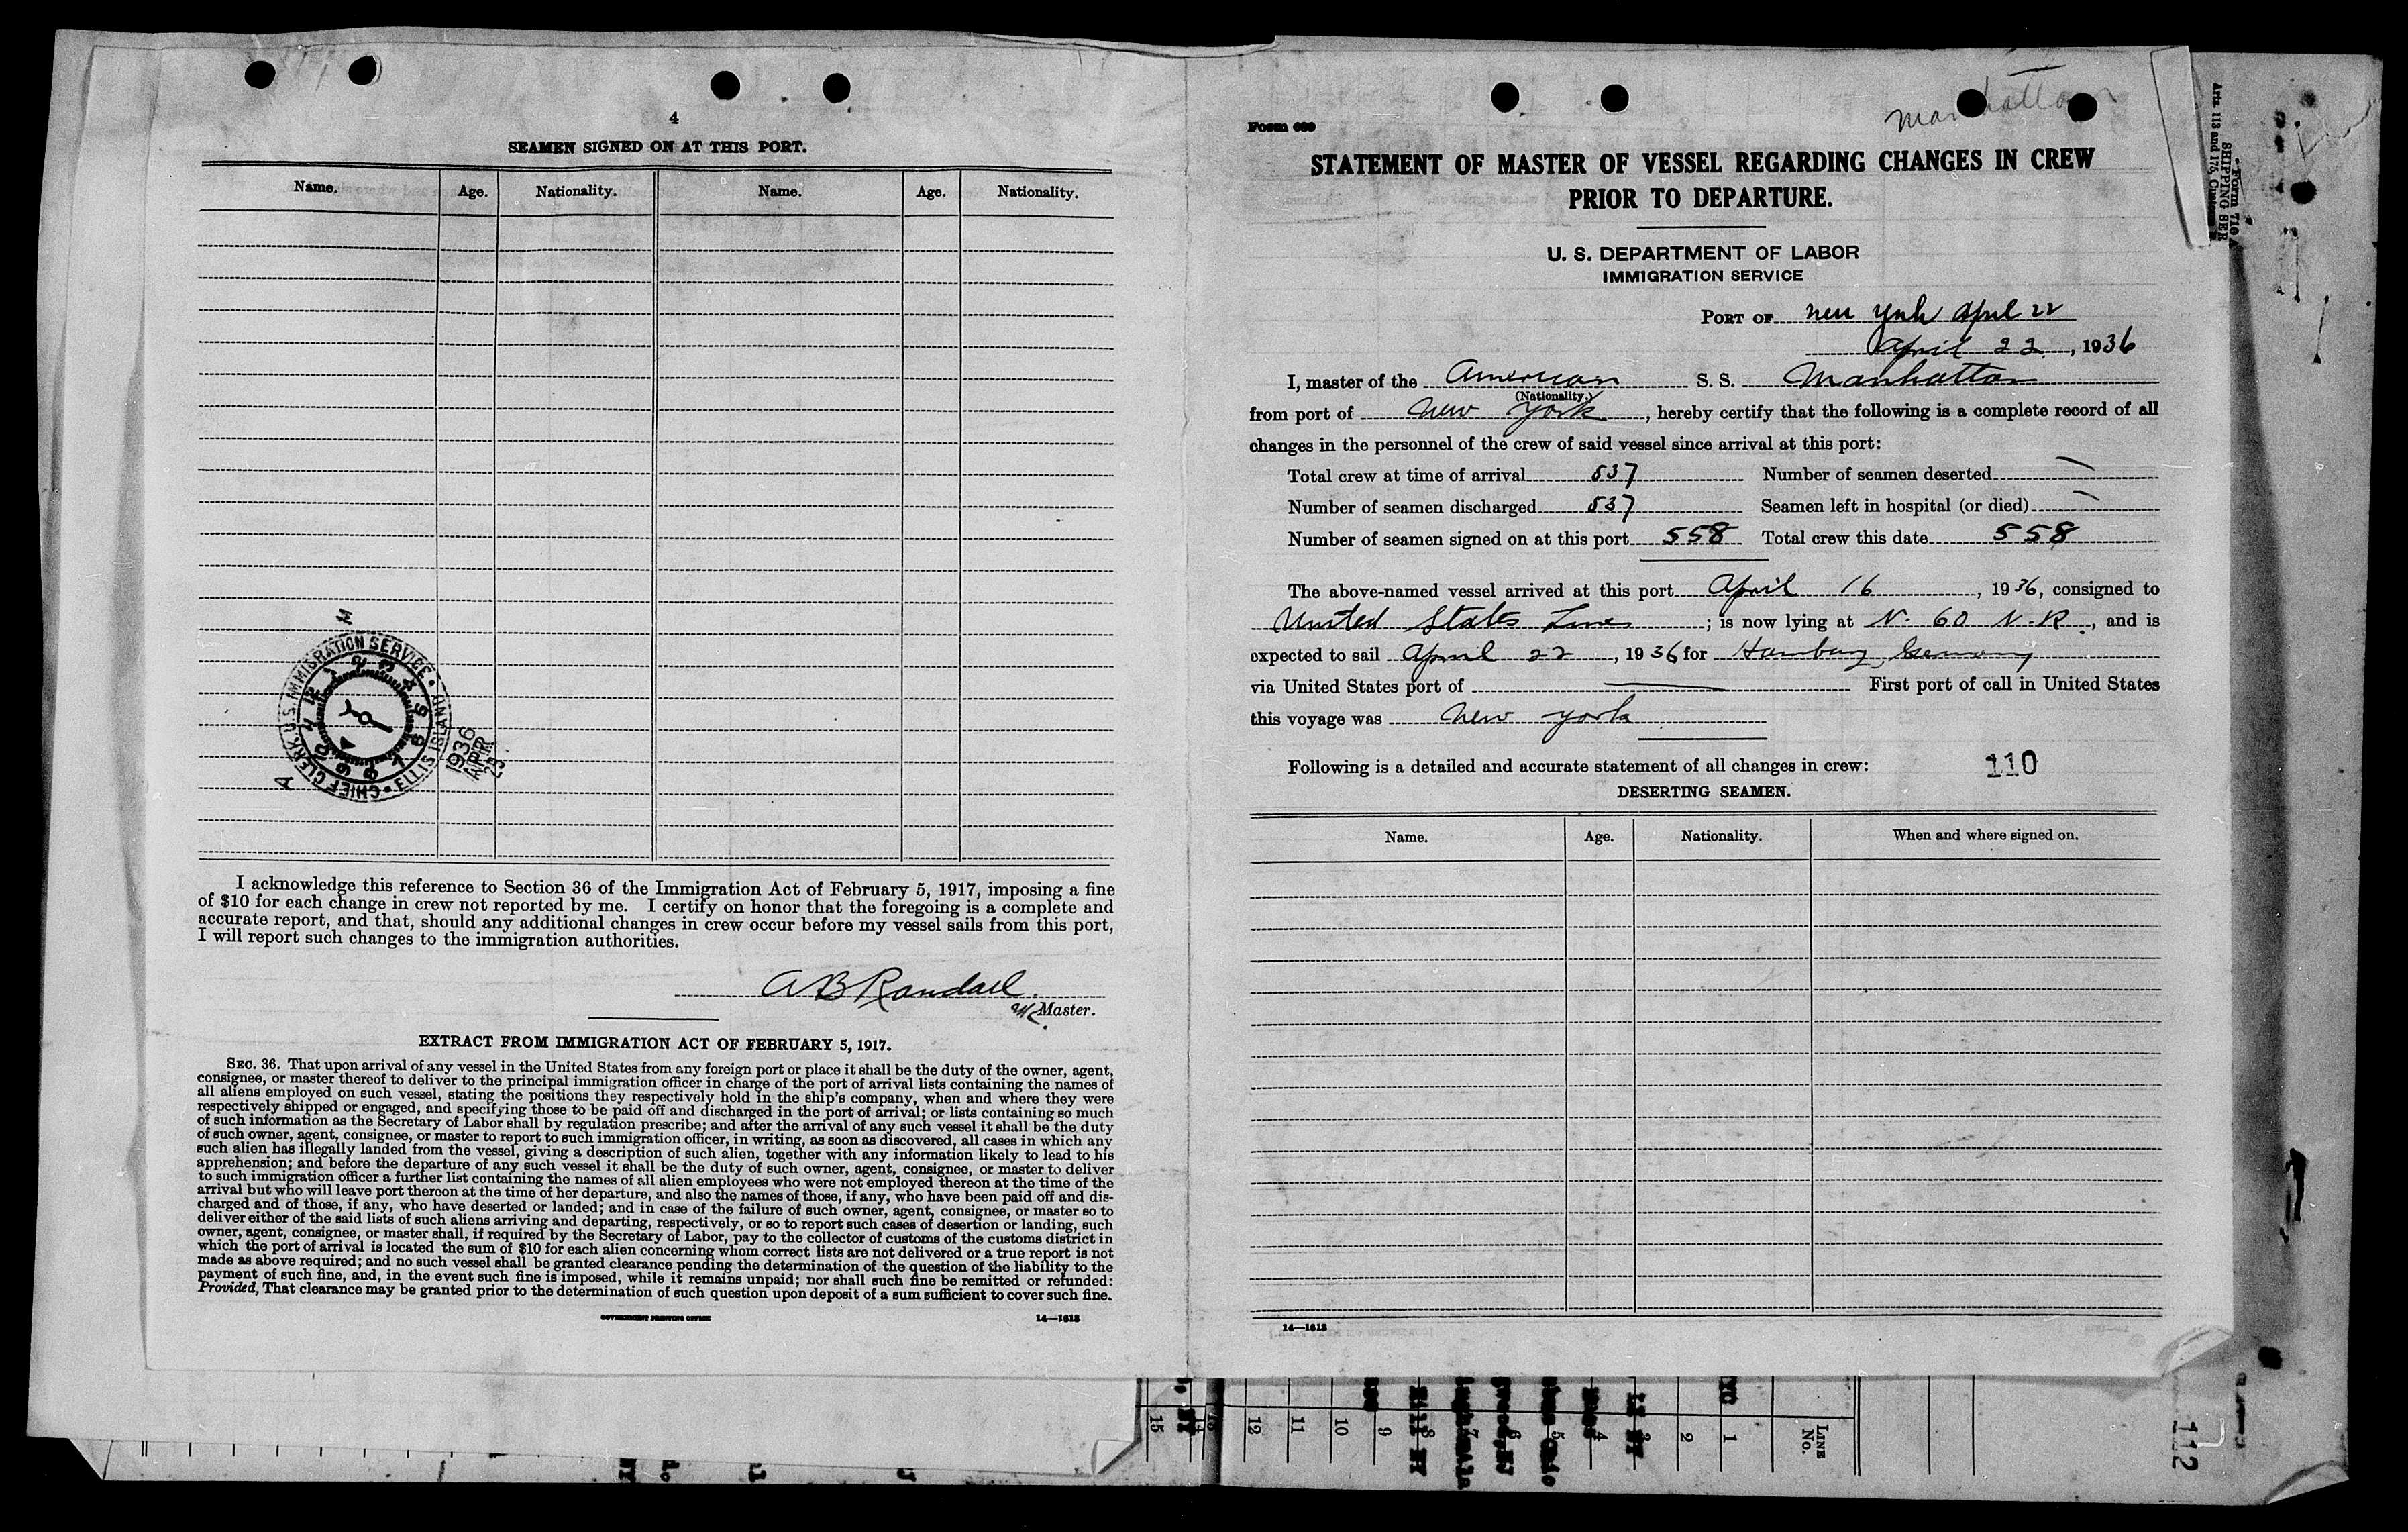 4
SEAMEN SIGNED ON AT THIS PORT.
Name. Age. Nationality. Name. Age. Nationality.
CHIEF CLERK U.S. IMMIGRATION SERVICE • ELLIS ISLAND •
1936
APR
23
I acknowledge this reference to Section 36 of the Immigration Act of February 5, 1917, imposing a fine
of $10 for each change in crew not reported by me. I certify on honor that the foregoing is a complete and
accurate report, and that, should any additional changes in crew occur before my vessel sails from this port,
I will report such changes to the immigration authorities.
A B Randall.
Master.
EXTRACT FROM IMMIGRATION ACT OF FEBRUARY 5, 1917.
SEC. 36. That upon arrival of any vessel in the United States from any foreign port or place it shall be the duty of the owner, agent,
consignee, or master thereof to deliver to the principal immigration officer in charge of the port of arrival lists containing the names of
all aliens employed on such vessel, stating the positions they respectively hold in the ship's company, when and where they were
respectively shipped or engaged, and specifying those to be paid off and discharged in the port of arrival; or lists containing so much
of such information as the Secretary of Labor shall by regulation prescribe; and after the arrival of any such vessel it shall be the duty
of such owner, agent, consignee, or master to report to such immigration officer, in writing, as soon as discovered, all cases in which any
such alien has illegally landed from the vessel, giving a description of such alien, together with any information likely to lead to his
apprehension; and before the departure of any such vessel it shall be the duty of such owner, agent, consignee, or master to deliver
to such immigration officer a further list containing the names of all alien employees who were not employed thereon at the time of the
arrival but who will leave port thereon at the time of her departure, and also the names of those, if any, who have been paid off and dis-
charged and of those, if any, who have deserted or landed; and in case of the failure of such owner, agent, consignee, or master so to
deliver either of the said lists of such aliens arriving and departing, respectively, or so to report such cases of desertion or landing, such
owner, agent, consignee, or master shall, if required by the Secretary of Labor, pay to the collector of customs of the customs district in
which the port of arrival is located the sum of $10 for each alien concerning whom correct lists are not delivered or a true report is not
made as above required; and no such vessel shall be granted clearance pending the determination of the question of the liability to the
payment of such fine, and, in the event such fine is imposed, while it remains unpaid; nor shall such fine be remitted or refunded:
Provided, That clearance may be granted prior to the determination of such question upon deposit of a sum sufficient to cover such fine.
GOVERNMENT PRINTING OFFICE 14—1613
Manhattan
Form 689
STATEMENT OF MASTER OF VESSEL REGARDING CHANGES IN CREW
PRIOR TO DEPARTURE.
U. S. DEPARTMENT OF LABOR
IMMIGRATION SERVICE
PORT OF New York April 22
April 22, 1936
I, master of the American S. S. Manhattan
(Nationality.)
from port of New York, hereby certify that the following is a complete record of all
changes in the personnel of the crew of said vessel since arrival at this port:
Total crew at time of arrival 537 Number of seamen deserted —
Number of seamen discharged 537 Seamen left in hospital (or died) —
Number of seamen signed on at this port 558 Total crew this date 558
The above-named vessel arrived at this port April 16, 1936, consigned to
United States Lines; is now lying at N. 60 N.R., and is
expected to sail April 22, 1936 for Hamburg, Germany
via United States port of — First port of call in United States
this voyage was New York
Following is a detailed and accurate statement of all changes in crew: 110
DESERTING SEAMEN.
Name. Age. Nationality. When and where signed on.
14—1613
Form 710
SHIPPING SER
Arts. 113 and 175, Customs
15 12 11 10 9 8 7 6 5 4 3 2 1 LINE No.
112